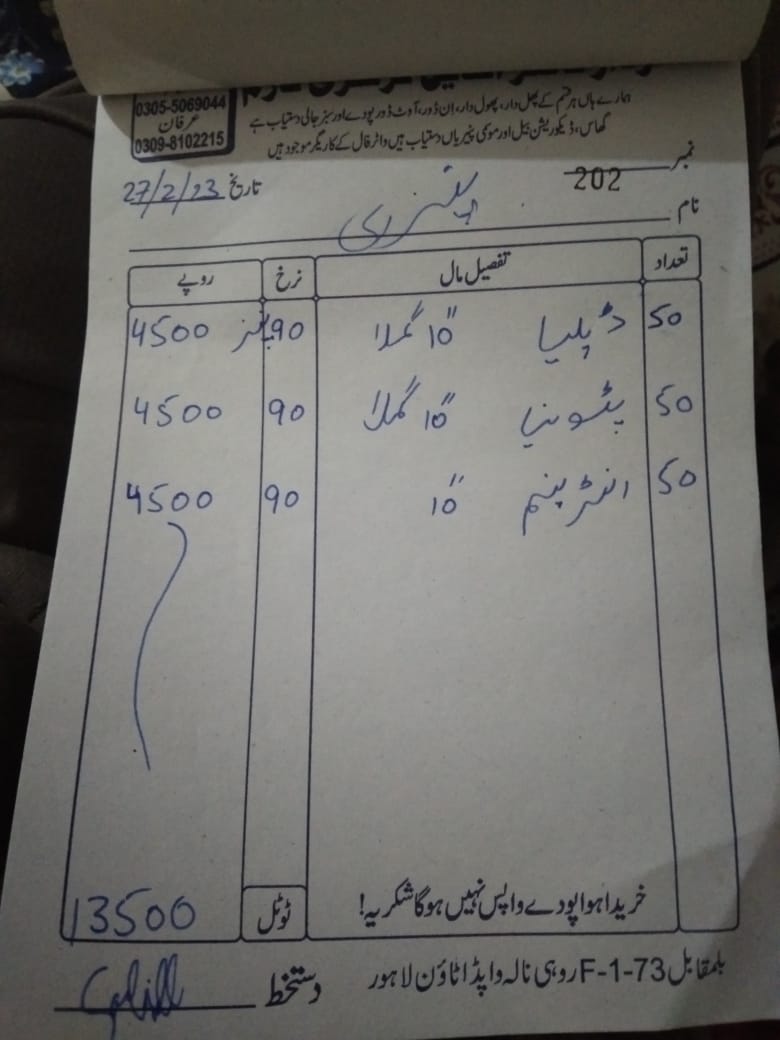 0305-5069044
عرفان
0309-8102215
ہمارے ہاں ہر قسم کے پھل دار، پھول دار، ان ڈور، آوٹ ڈور پودے اور سبز جالی دستیاب ہے
گھاس، ڈیکوریشن بیل اور موسمی پنیریاں دستیاب ہیں واٹر فال کے کاریگر موجود ہیں
نمبر 202
تاریخ 27/2/23
نام
تعداد تفصیل مال نرخ روپے
50 ڈہلیا 10" گملا 90 4500
50 پٹونیا 10" گملا 90 4500
50 انٹرینم 10" 90 4500
خریدا ہوا پودے واپس نہیں ہوگا شکریہ! ٹوٹل 13500
بلمقابل F-1-73 روہی نالہ واپڈا ٹاؤن لاہور
دستخط